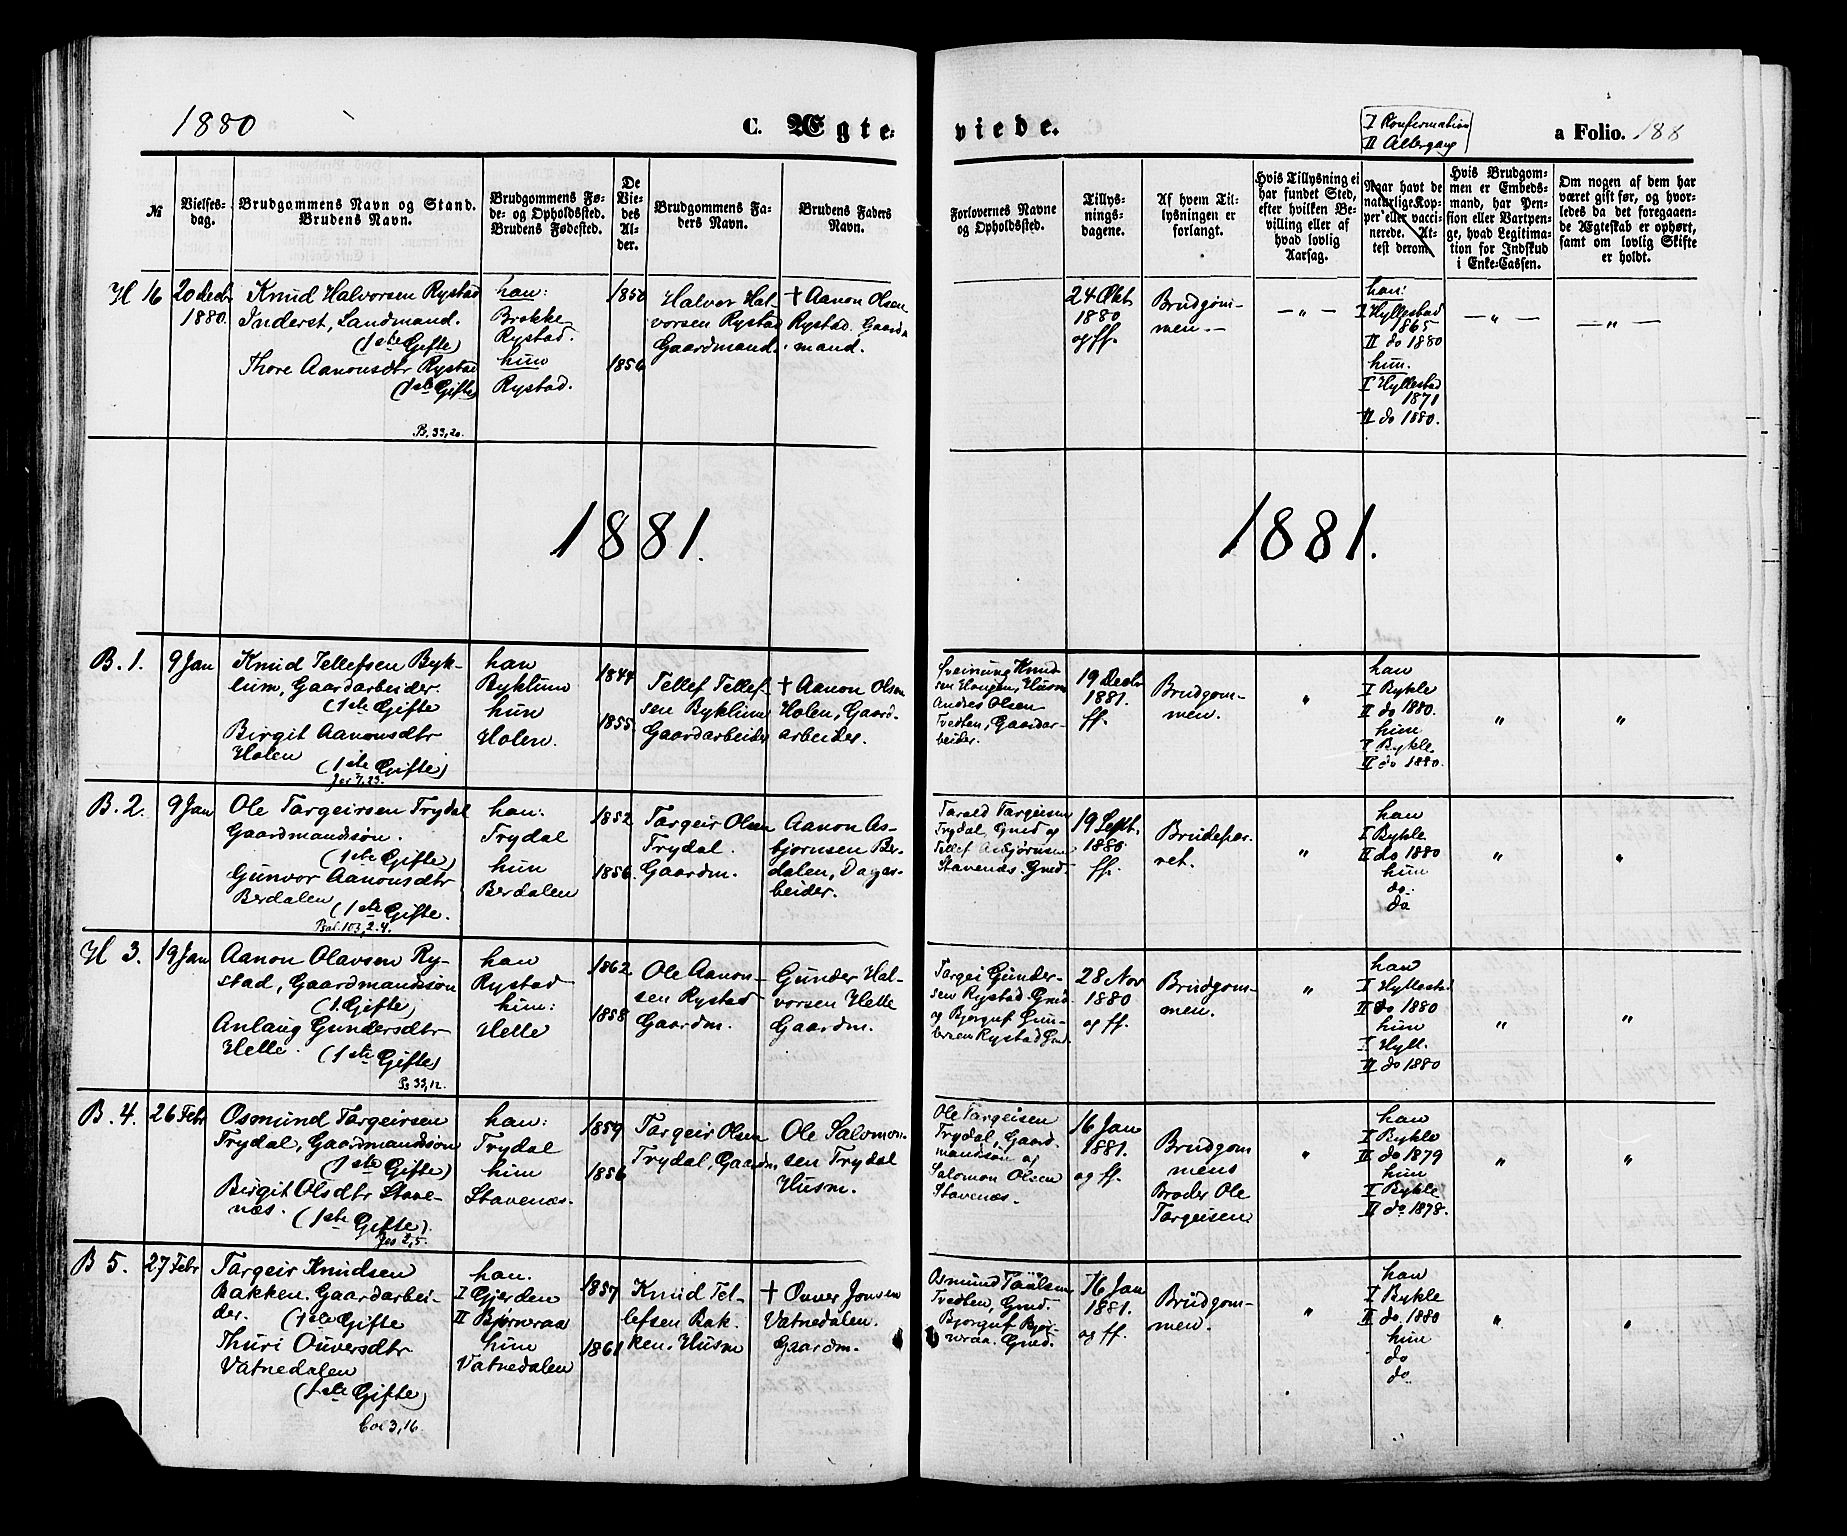 1880
C. Ægte-
viede.
I Konfirmation
II Altergang
a Folio. 188
№
Vielses-
dag.
Brudgommens Navn og Stand.
Brudens Navn.
Brudgommens Fø-
de- og Opholdssted.
Brudens Fødested.
De
Vie-
des
Al-
der.
Brudgommens Fa-
ders Navn.
Brudens Faders
Navn.
Forlovernes Navne
og Opholdssted.
Tillys-
nings-
dagene.
Af hvem Til-
lysningen er
forlangt.
Hvis Tillysning ei
har fundet Sted,
efter hvilken Be-
villing eller af
hvad lovlig
Aarsag.
Naar havt de
naturlige Kop-
per eller vacci-
nerede. At-
test derom.
Hvis Brudgom-
men er Embeds-
mand, har Pen-
sion eller Vartpen-
ge, hvad Legitima-
tion for Indskud
i Enke-Cassen.
Om nogen af dem har
været gift før, og hvor-
ledes da det foregaaen-
de Ægteskab er ophørt,
samt om lovlig Skifte
er holdt.
H 16
20 Decbr
1880.
Knud Halvorsen Rystad
Inderst, Landmand.
(1ste Gifte)
Thore Aanonsdtr Rystad
(1ste Gifte)
P. 33,20.
han:
Brokke
Rystad.
hun
Rystad.
1850
1856
Halvor Hal-
vorsen Rystad
Gaardmand.
† Aanon Olsen
Rystad. Gaard-
mand.
24 Okt
1880
og ff.
Brudgom-
men.-
— „ —
han:
I Hyllestad
1865
II do 1880
hun.
I Hyllestad
1871
II do 1880.
— „ —
— „ —
1881.
1881.
B. 1.
9 Jan
Knud Tellefsen Byk-
lum, Gaardarbeider.
(1ste Gifte
Birgit Aanonsdtr
Holen
(1ste Gifte)
Jos 7,23.
han
Byklum
hun
Holen.
1844
1855.
Tellef Tellef-
sen Byklum
Gaardarbeider
† Aanon Olsen
Holen, Gaard-
arbeider.
Sveinung Knud
sen Haugen, Husm
Andres Olsen
Tvedten, Gaardar-
beider.
19 Decbr
1881.
ff.
Brudgom-
men.
„
han
I Bykle
II do 1880.
hun
I Bykle
II do 1880.
„
„
B. 2.
9 Jan
Ole Targeirsen Trydal
Gaardmandssøn.
(1ste Gifte)
Gunvor Aanonsdtr
Berdalen
(1ste Gifte.
Sal. 103, 2. 4.
han:
Trydal
hun
Berdalen
1852
1856.
Targeir Olsen
Trydal.
Gaardm.
Aanon As-
bjørnsen Be-
dalen, Dagar-
beider.
Tarald Targeisen
Trydal, Gmd og
Tellef Asbjørnsen
Stavenæs. Gmd.
19 Sept.
1880
ff.
Brudepar-
ret.
„
han
I Bykle
II do 1880
hun
do.
do
„
„
H 3.
19 Jan
Aanon Olavsen Ry-
stad, Gaardmandssøn
(1. Gifte)
Anlaug Gundersdtr
Helle.
(1ste Gifte)
Ps 33,12.
han
Rystad
hun:
Helle
1862.
1858
Ole Aanon-
sen Rystad
Gaardm.
Gunder Hal-
vorsen Helle
Gaardm.
Targei Gunder-
sen Rystad. Gmd
og Bjorguf Gun-
dersen Rystad Gmd.
28 Nov
1880
og ff.
Brudgom-
men.
„
han
I Hyllestad
II do 1880
hun
I Hyll.
II do 1880
„
„
B. 4.
26 Febr
Osmund Targeirsen
Trydal, Gaardmandssøn
(1ste Gifte)
Birgit Olsdtr Stave-
næs.
(1ste Gifte).
Jes 2,5.
han:
Trydal
hun
Stavenæs.
1859
1856
Targeir Olsen
Trydal, Gaardm
Ole Salomon-
sen Trydal
Husm.
Ole Targeisen
Trydal, Gaard-
mandsøn og
Salomon Olsen
Stavenæs.
16 Jan
1881.
og ff.
Brudgom
mens
Broder Ole
Targeisen
„
han
I Bykle
II do 1879
hun
I Bykle
II do 1878.
„
„
B 5.
27 Febr
Targeir Knudsen
Bakken. Gaardarbei-
der. (1ste Gifte
Thuri Ouversdtr
Vatnedalen
(1ste Gifte)
Col 3,16.
han.
I Gjerden
II Bjørnraa
hun
Vatnedalen
1857
1861
Knud Tel-
lefsen Bak-
ken. Husm
† Ouver Jonsen
Vatnedalen.
Gaardm.
Osmund Taalsen
Tvedten, Gmd.
Bjorguf Bjør-
nraa. Gmd.
16 Jan
1881.
og ff.
Brudgom-
men.
„
han
I Bykle
II do 1880
hun
do
do
„
„